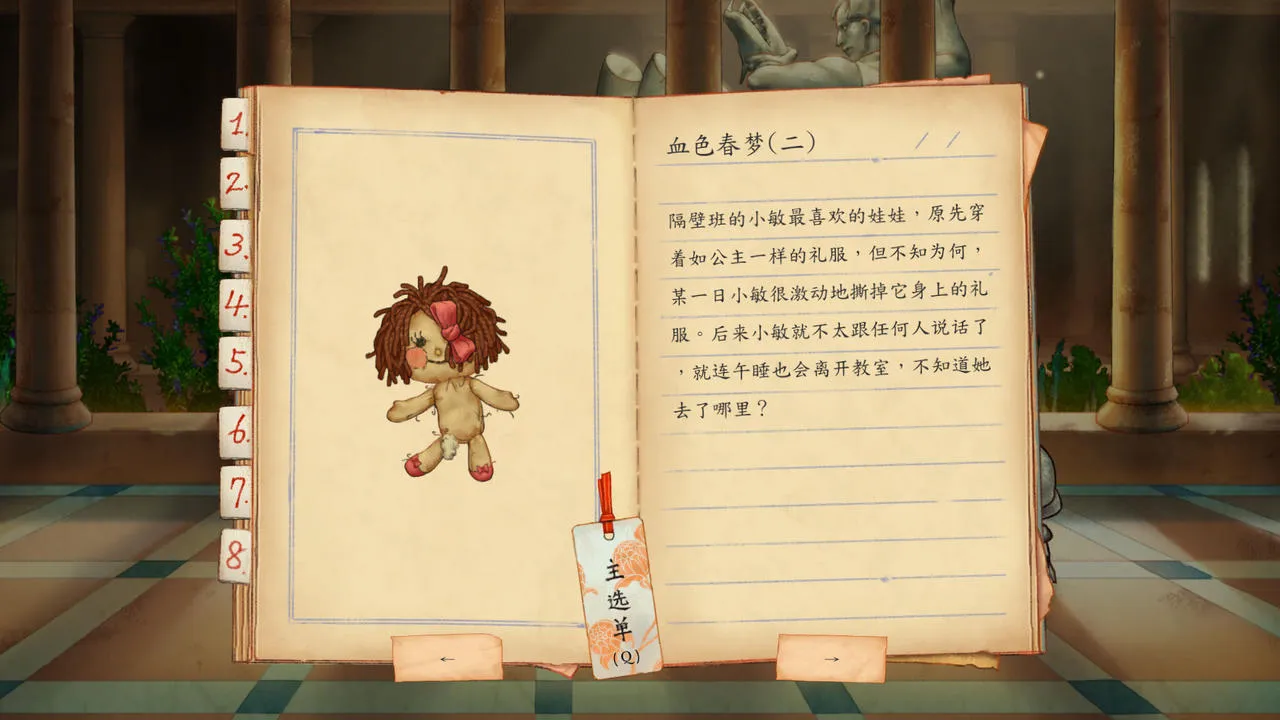 1.
2.
3.
4.
5.
6.
7.
8.
血色春梦(二) / /
隔壁班的小敏最喜欢的娃娃，原先穿
着如公主一样的礼服，但不知为何，
某一日小敏很激动地撕掉它身上的礼
服。后来小敏就不太跟任何人说话了
，就连午睡也会离开教室，不知道她
去了哪里？
主选单
(Q)
←
→